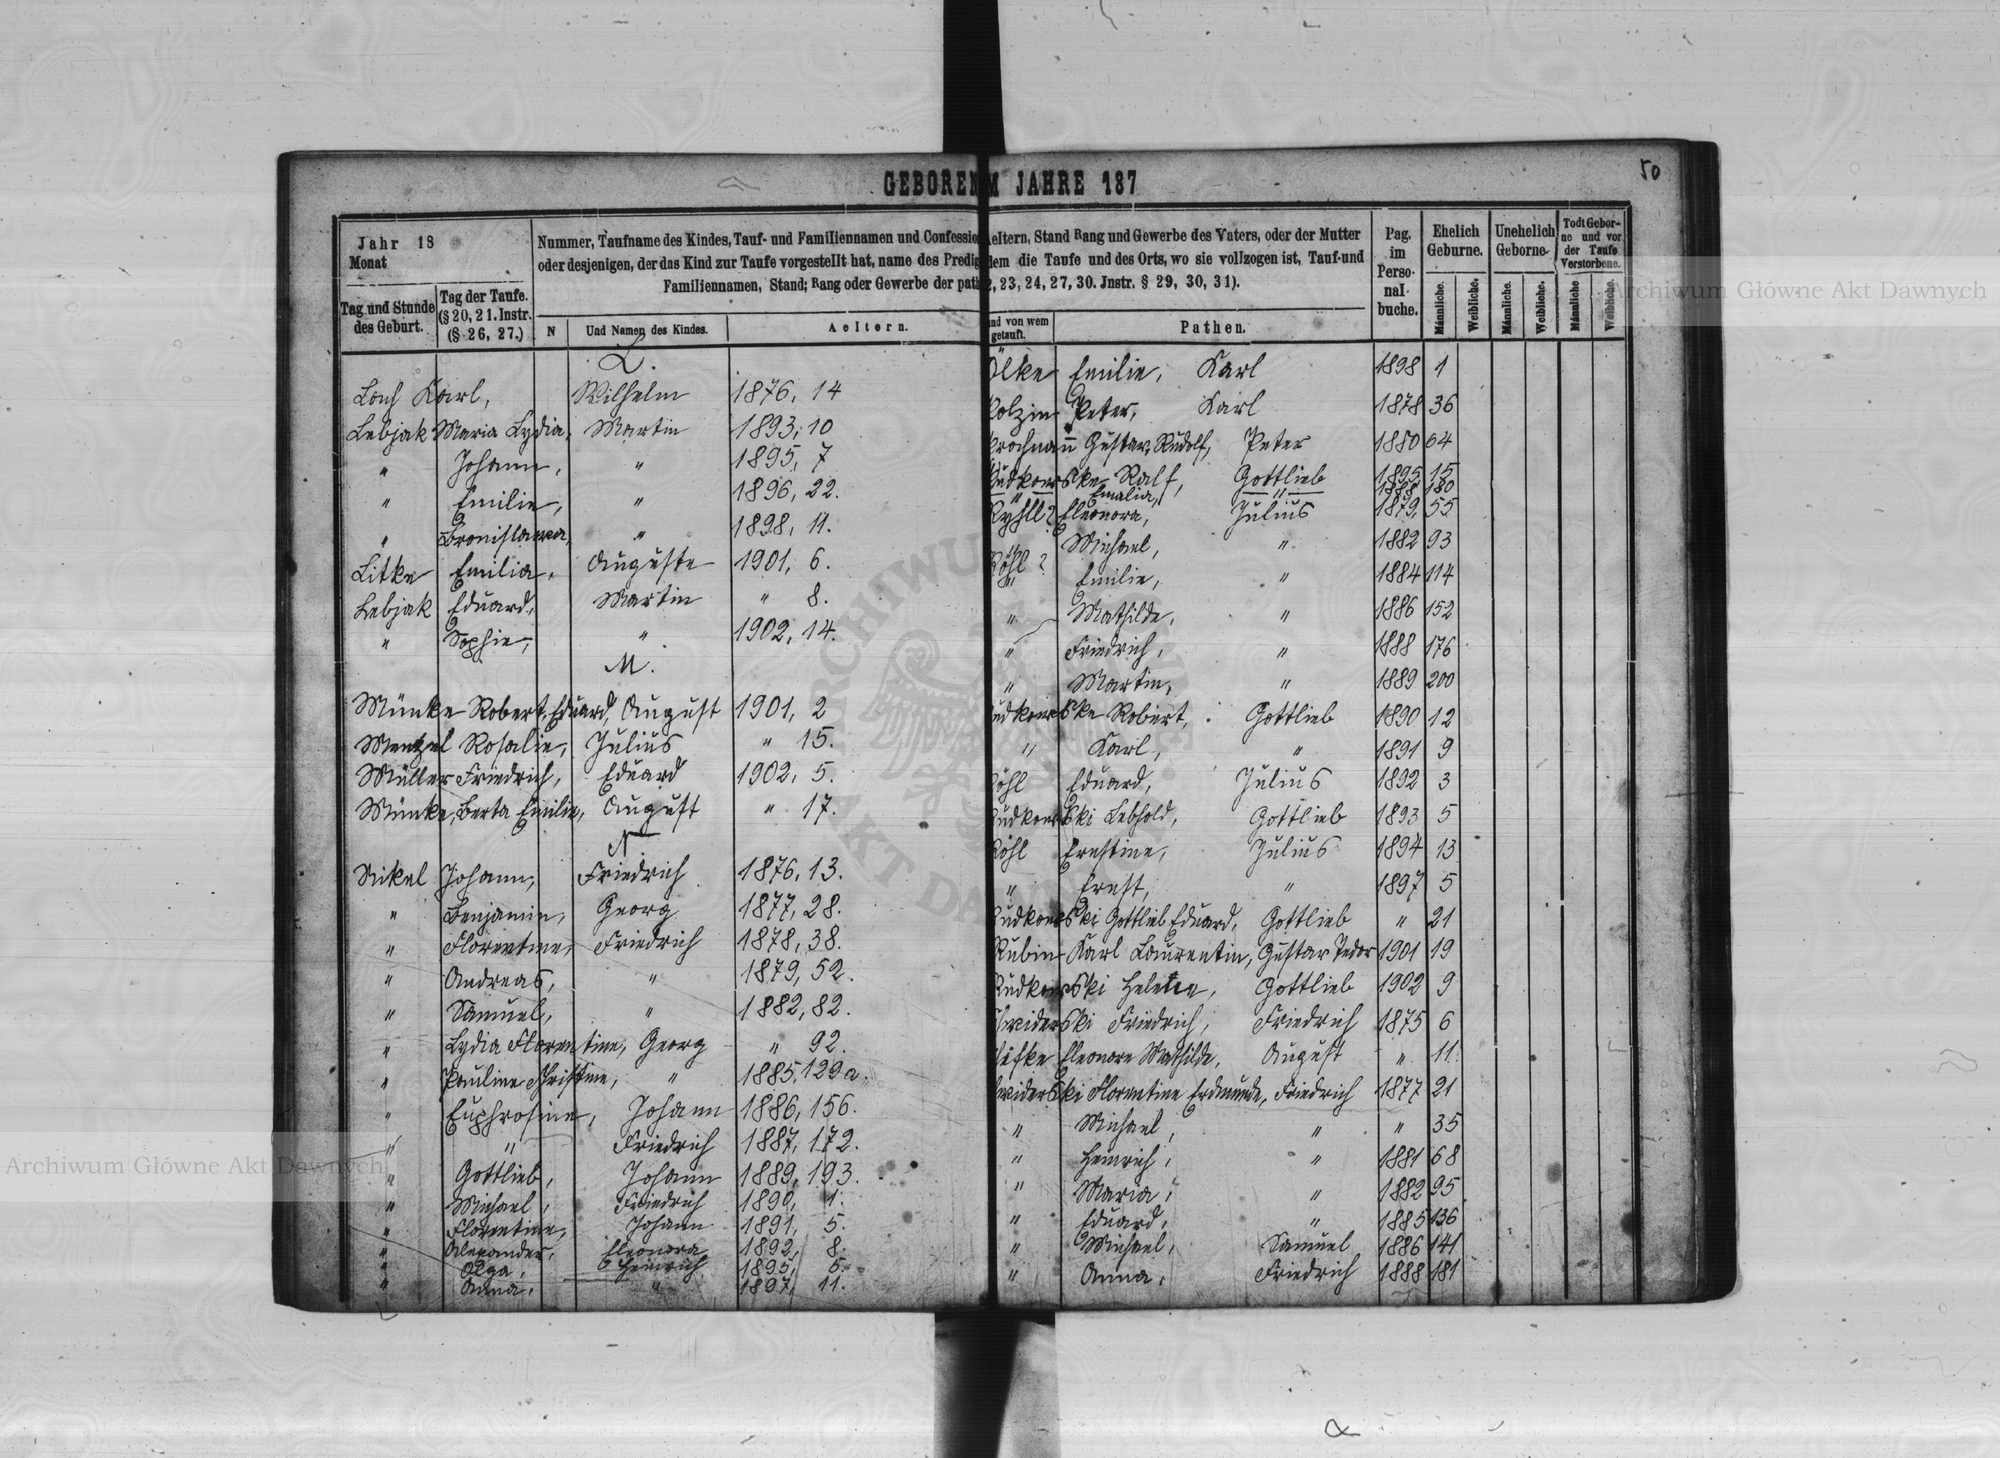 50
GEBOREN M JAHRE 187
Jahr 18
Monat
Tag und Stunde des Geburt.
Tag der Taufe. (§ 20, 21. Instr. (§ 26, 27.)
Nummer, Taufname des Kindes, Tauf- und Familiennamen und Confession
oder desjenigen, der das Kind zur Taufe vorgestellt hat, name des Predig
Familiennamen, Stand; Rang oder Gewerbe der path
N
Und Namen des Kindes.
Aeltern.
L.
Karl, Wilhelm 1876, 14
Lebjak Maria Lydia, Martin 1893, 10
" Johann, " 1895, 7
" Emilie, " 1896, 22.
" Bronislawa, " 1898, 11.
Litke Emilia, Auguste 1901, 6.
Lebjak Eduard, Martin " 8.
" Sophie, " 1902, 14.
M.
Münke Robert, Eduard, August 1901, 2
Mentzel Rosalie, Julius " 15.
Müller Friedrich, Eduard 1902, 5.
Münke, Berta Emilie, August " 17.
N
Nikel Johann, Friedrich 1876, 13.
" Benjamin, Georg 1877, 28.
" Florentine, Friedrich 1878, 38.
" Andreas, " 1879, 52.
" Samuel, " 1882, 82.
" Lydia Florentine, Georg " 92.
" Pauline Christine, " 1885, 129a.
" Euphrosine, Johann 1886, 156.
" " Friedrich 1887, 172.
" Gottlieb, Johann 1889, 193.
" Michael, Friedrich 1890, 1.
" Florentine, Johann 1891, 5.
" Alexander, Eleonora 1892, 8.
" Olga, Heinrich 1895, 5.
" Anna, " 1897, 11.
Aeltern, Stand Rang und Gewerbe des Vaters, oder der Mutter
dem die Taufe und des Orts, wo sie vollzogen ist, Tauf-und
2, 23, 24, 27, 30. Jnstr. § 29, 30, 31).
nd von wem getauft.
Pathen.
Pag. im Perso- nal- buche.
Ehelich Geburne.
Unehelich Geborne.
Todt Gebor- ne und vor der Taufe Verstorbene.
Männliche. Weibliche. Männliche. Weibliche. Männliche Weibliche.
ölke Emilie, Karl 1898 1
olzin Peter, Karl 1878 36
rochnau Gustav Rudolf, Peter 1880 64
Rudkowske Ralf, Gottlieb 1895 15
" Emalia, " 1888 180
Ryhll? Eleonora, Julius 1879, 55
Röhl? Michael, " 1882 93
" Emilie, " 1884 114
" Mathilde, " 1886 152
" Friedrich, " 1888 176
" Martin, " 1889 200
udkowske Robert, Gottlieb 1890 12
" Karl, " 1891 9
öhl Eduard, Julius 1892 3
udkowski Lebhold, Gottlieb 1893 5
Röhl Ernstine, Julius 1894 13
" Ernst, " 1897 5
Rudkowski Gottlieb Eduard, Gottlieb " 21
Rubin Karl Laurentin, Gustav Teodor 1901 19
Rudkowski Helene, Gottlieb 1902 9
widerski Friedrich, Friedrich 1875 6
Eleonore Mathilde, August " 11.
widerski Florentine Erdmunde, Friedrich 1877 21
" Michael, " " 35
" Heinrich, " 1881 68
" Maria, " 1882 95
" Eduard, " 1885 136
" Michael, Samuel 1886 141
" Anna, Friedrich 1888 181
Archiwum Główne Akt Dawnych
Archiwum Główne Akt Dawnych